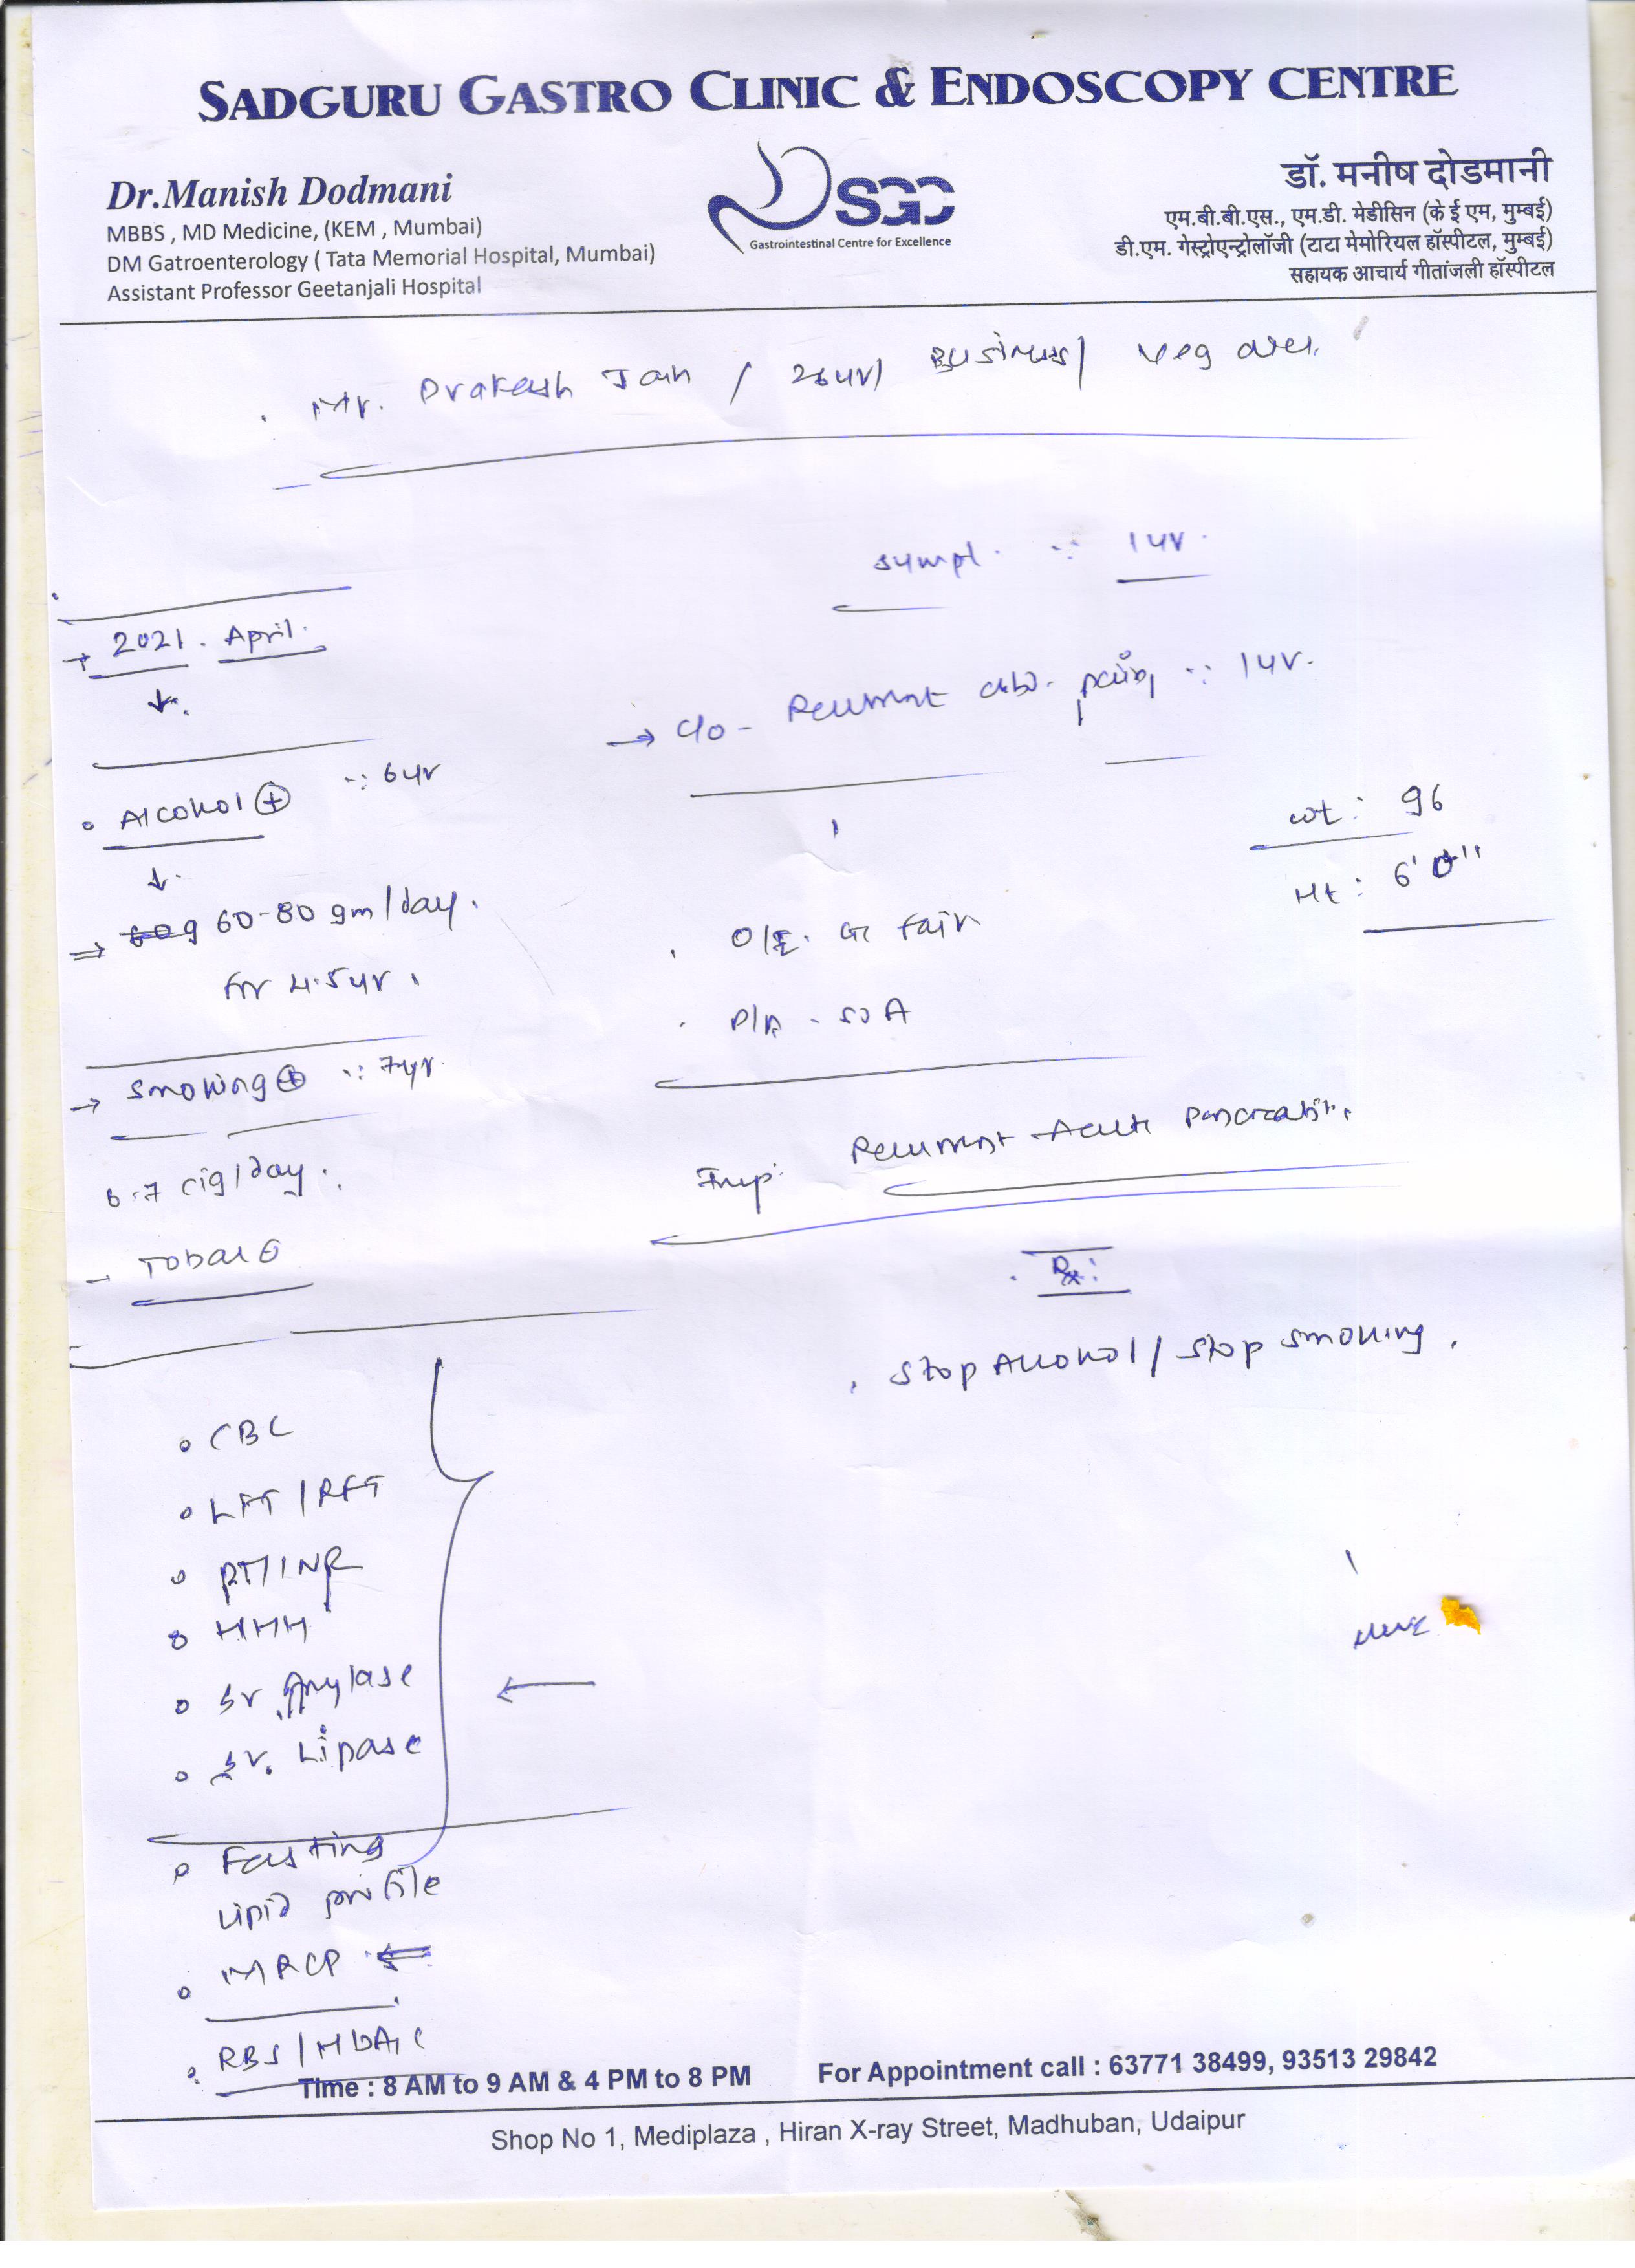 SADGURU GASTRO CLINIC & ENDOSCOPY CENTRE
Dr.Manish Dodmani
MBBS , MD Medicine, (KEM , Mumbai)
DM Gatroenterology ( Tata Memorial Hospital, Mumbai)
Assistant Professor Geetanjali Hospital
SGC
Gastrointestinal Centre for Excellence
डॉ. मनीष दोडमानी
एम.बी.बी.एस., एम.डी. मेडीसिन (के ई एम, मुम्बई)
डी.एम. गेस्ट्रोएन्ट्रोलॉजी (टाटा मेमोरियल हॉस्पीटल, मुम्बई)
सहायक आचार्य गीतांजली हॉस्पीटल
Mr. Prakash Jain / 26yr/ Business/ veg
2021. April.
Alcohol ⊕ ∵ 6yr
60-80 gm/day.
for 4.5yr.
Smoking ⊕ ∵ 7yr.
6-7 cig/day.
sympt. ∵ 1yr.
→ C/o - Recurrent abd. pain ∵ 1yr.
wt: 96
Ht: 6'0"
O/E. GC fair
P/A - soft
Imp: Recurrent Acute Pancreatitis
Rx:
Stop Alcohol / Stop smoking.
CBC
LFT / RFT
PT/INR
HHH
Sr. Amylase
Sr. Lipase
Fasting
lipid profile
MRCP ←
RBS / HbA1c
Time : 8 AM to 9 AM & 4 PM to 8 PM
For Appointment call : 63771 38499, 93513 29842
Shop No 1, Mediplaza , Hiran X-ray Street, Madhuban, Udaipur